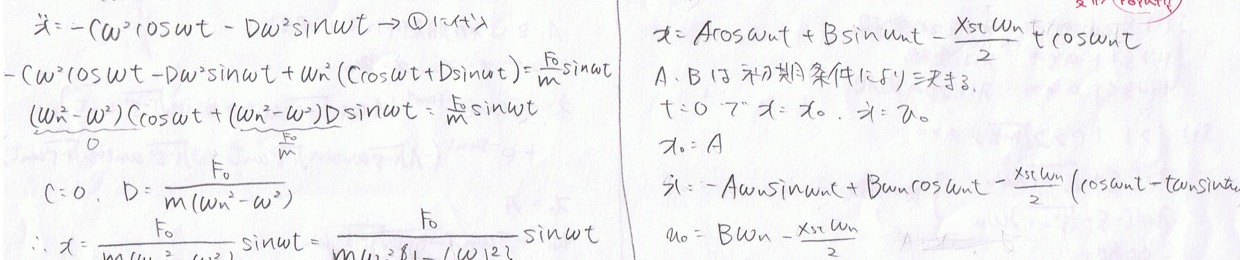 ẍ = -Cω²cosωt - Dω²sinωt → ①に代入
-Cω²cosωt - Dω²sinωt + ωn²(Ccosωt + Dsinωt) = F₀/m sinωt
(ωn² - ω²)Ccosωt + (ωn² - ω²)Dsinωt = F₀/m sinωt
0 F₀/m
C=0. D = F₀/m(ωn² - ω²)
∴ x = F₀/m(ωn² - ω²) sinωt = F₀ sinωt
x = Acosωnt + Bsinωnt - Xstωn/2 tcosωnt
A. Bは初期条件により決まる.
t=0で x = x₀. ẋ = u₀
x₀ = A
ẋ = -Aωnsinωnt + Bωncosωnt - Xstωn/2 (cosωnt - tωnsinωn
u₀ = Bωn - Xstωn/2